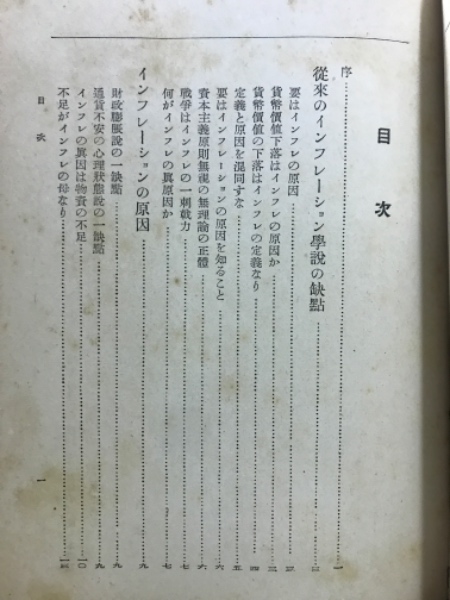 目次
序 一
從來のインフレーション學說の缺點 三
要はインフレの原因 三
貨幣價値下落はインフレの原因か 三
貨幣價値の下落はインフレの定義なり 四
定義と原因を混同すな 五
要はインフレーションの原因を知ること 六
資本主義原則無視の無理論の正體 六
戰爭はインフレの一刺戟力 七
何がインフレの眞原因か 七
インフレーションの原因 九
財政膨脹說の一缺點 九
通貨不安の心理狀態說の一缺點 九
インフレの眞因は物資の不足 一〇
不足がインフレの母なり
目次 一